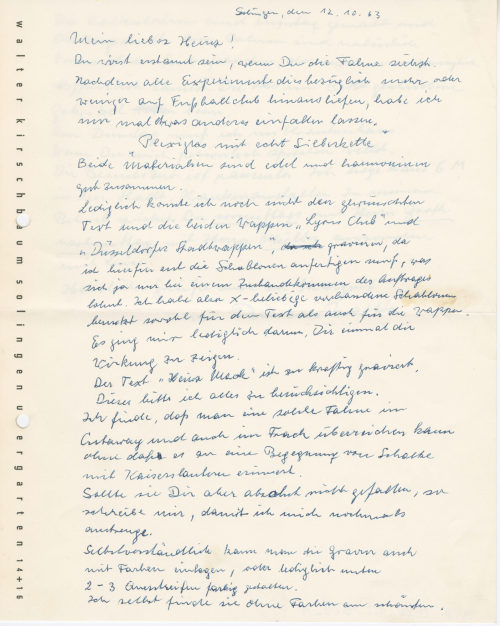 walter kirschbaum solingen u ergarten 14+15
Solingen, den 12.10.63
Mein lieber Heinz!
Du wirst erstaunt sein, wenn Du die Fahne siehst.
Nachdem alle Experimente diesbezüglich mehr oder
weniger auf Fußballclub hinausliefen, habe ich
mir mal etwas anderes einfallen lassen.
"Plexiglas mit echt Silberkette"
Beide Materialien sind edel und harmonieren
gut zusammen.
Lediglich konnte ich noch nicht den gewünschten
Text und die beiden Wappen „Lyons Club" und
„Düsseldorfer Stadtwappen", gravieren, da
ich hierfür erst die Schablonen anfertigen muß, was
sich ja nur bei einem Zustandekommen des Auftrages
lohnt. Ich habe also X-beliebige vorhandene Schablonen
benutzt sowohl für den Text als auch für die Wappen.
Es ging mir lediglich darum, Dir einmal die
Wirkung zu zeigen.
Der Text „Heinz Mack" ist zu kräftig graviert.
Dieses bitte ich alles zu berücksichtigen.
Ich finde, daß man eine solche Fahne im
Cutaway und auch im Frack überreichen kann
ohne daß es an eine Begegnung von Schalke
mit Kaiserslautern erinnert.
Sollte sie Dir aber absolut nicht gefallen, so
schreibe mir, damit ich mich nochmals
anstrenge.
Selbstverständlich kann man die Gravur auch
mit Farben einlegen, oder lediglich unten
2-3 Querstreifen farbig gestalten.
Ich selbst finde sie ohne Farben am schönsten.